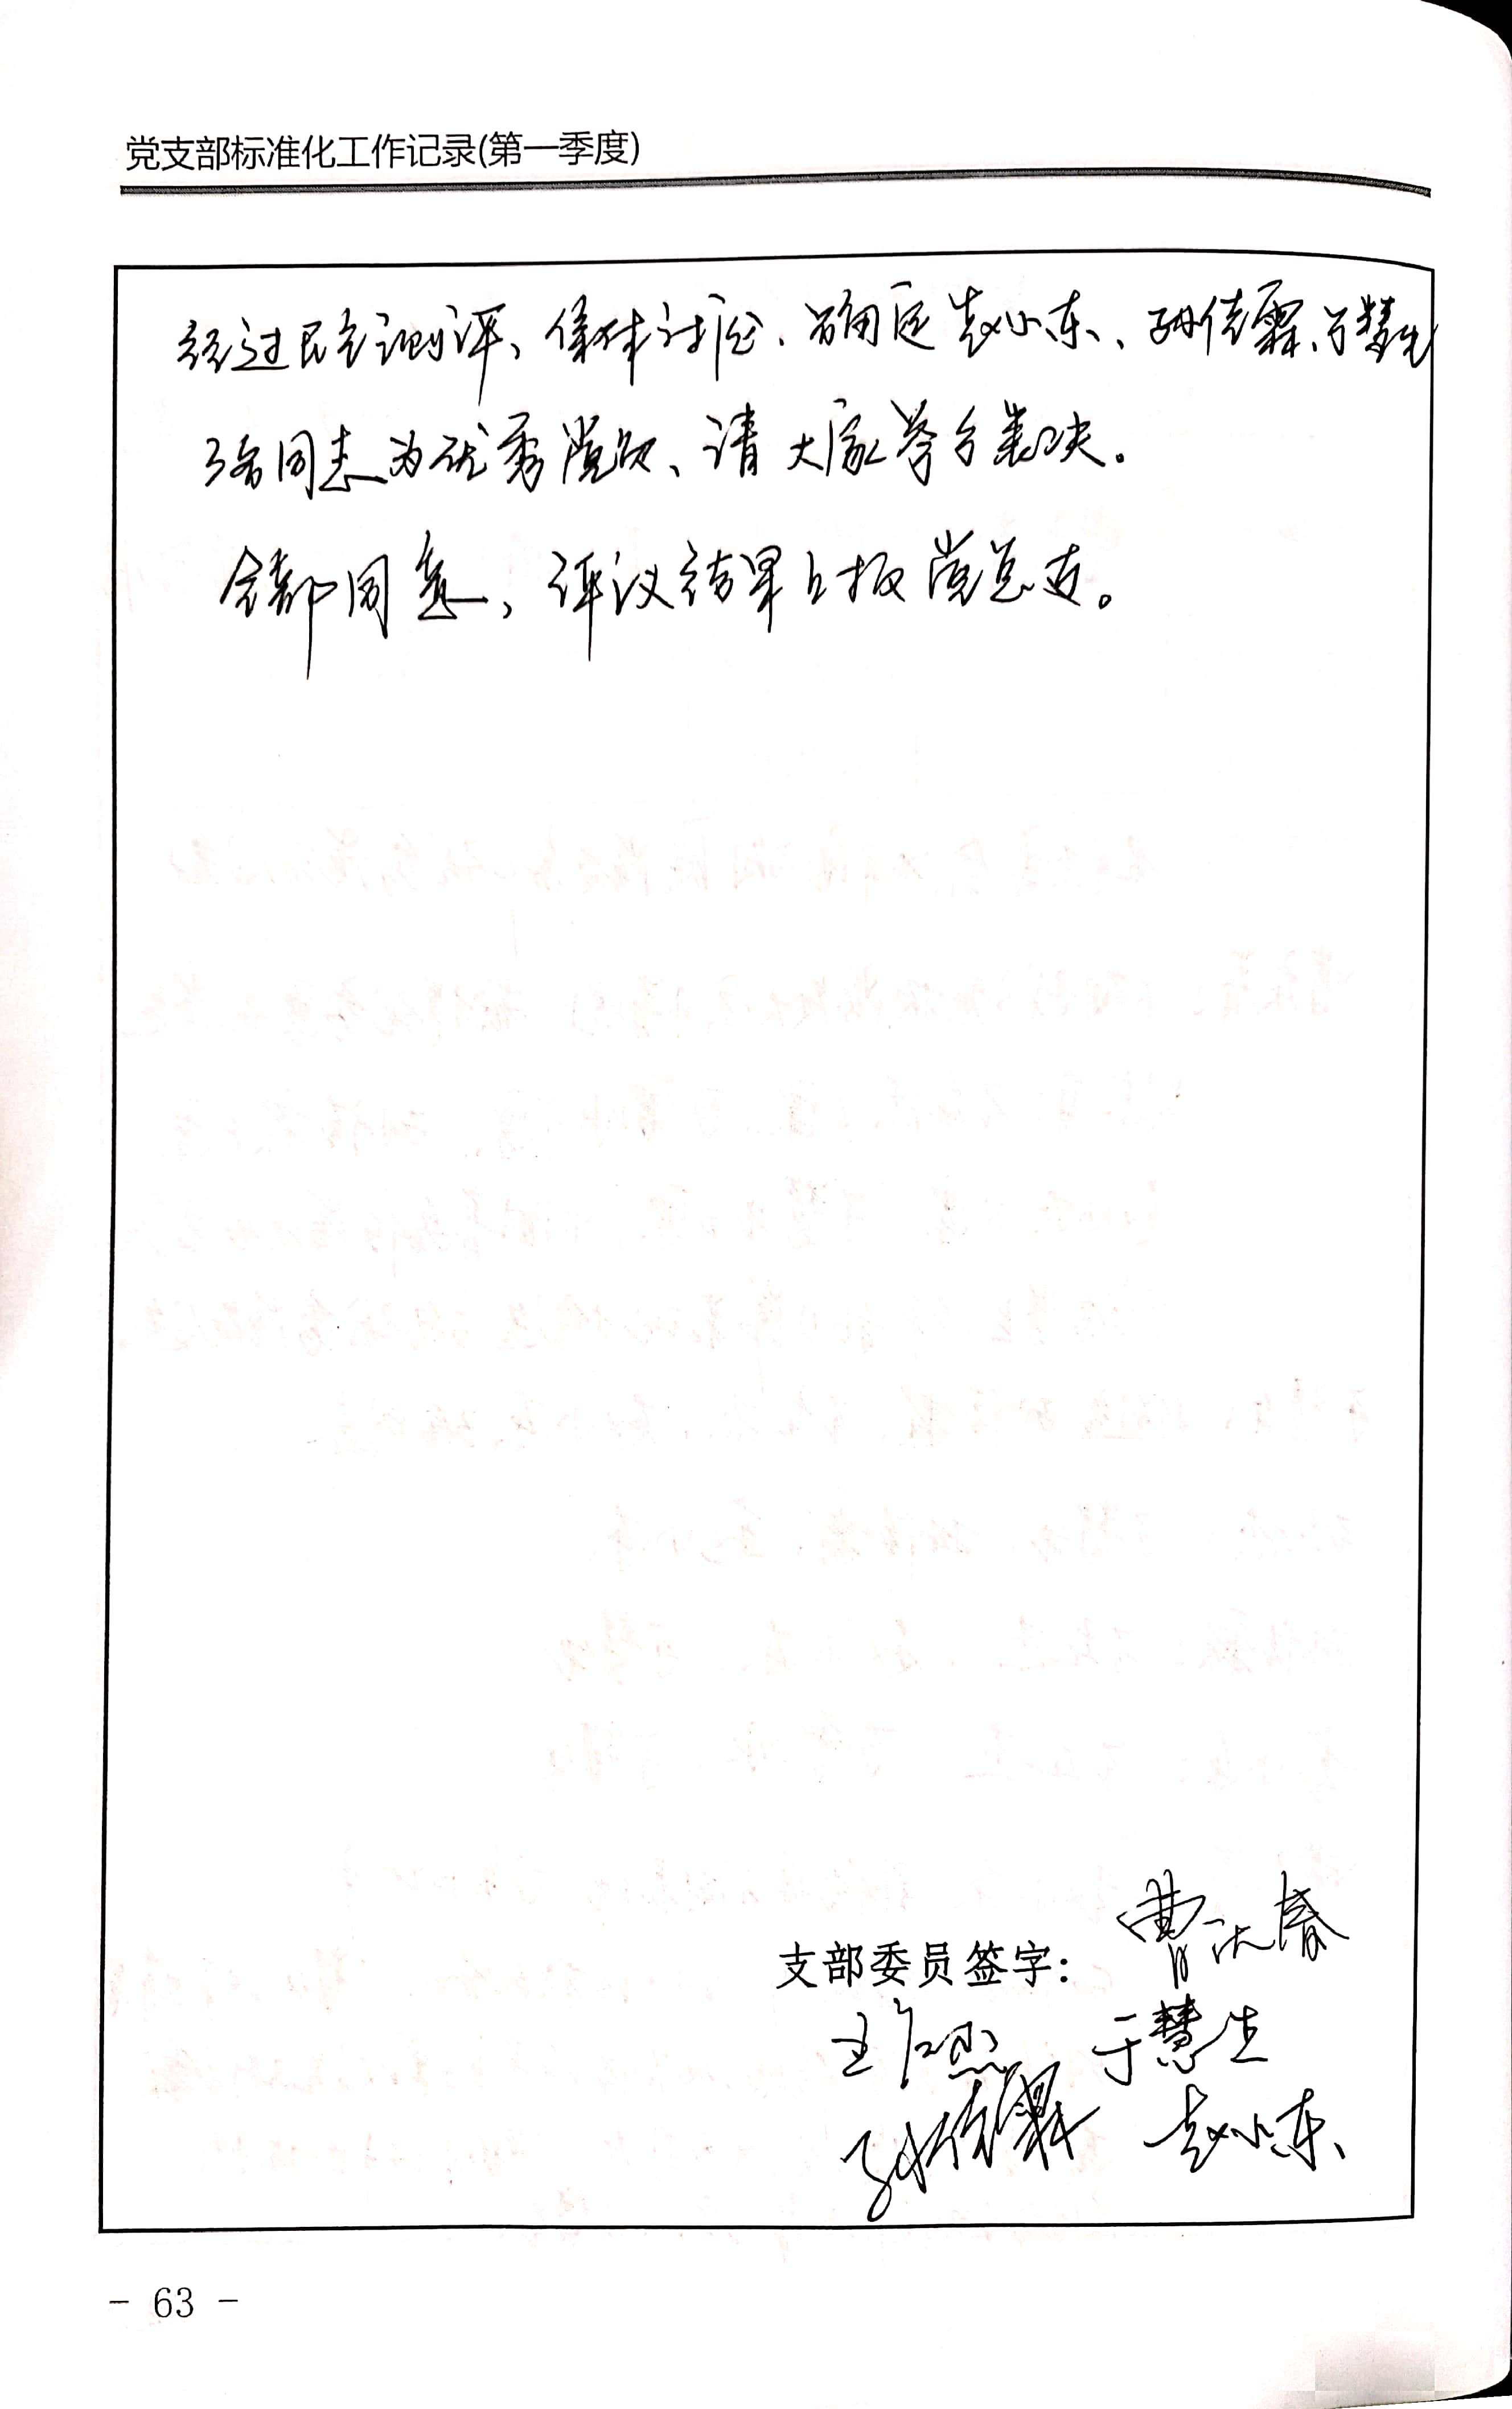 党支部标准化工作记录(第一季度)
经过民主测评、集体讨论、确定赵小东、孙佳霖、于慧生
3名同志为优秀党员、请大家举手表决。
全都同意，评议结果上报党总支。
支部委员签字：曹 春
王 于慧生
孙佳霖 赵小东
- 63 -